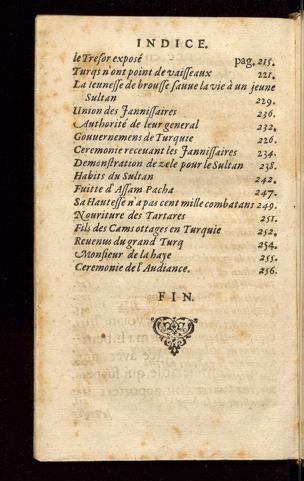 INDICE.
le Tresor exposé pag. 215.
Turqs n'ont point de vaisseaux 221.
La ieunesse de brousse sauue la vie à un jeune
Sultan 229.
Union des Jannissaires 236.
Authorité de leur general 232.
Gouuernemens de Turquie 226.
Ceremonie receuant les Jannissaires 234.
Demonstration de zele pour le Sultan 238.
Habits du Sultan 242.
Fuitte d'Assam Pacha 247.
Sa Hautesse n'a pas cent mille combatans 249.
Nouriture des Tartares 251.
Fils des Cams ottages en Turquie 252.
Reuenus du grand Turq 254.
Monsieur de la haye 255.
Ceremonie de l'Audiance. 256.
FIN.